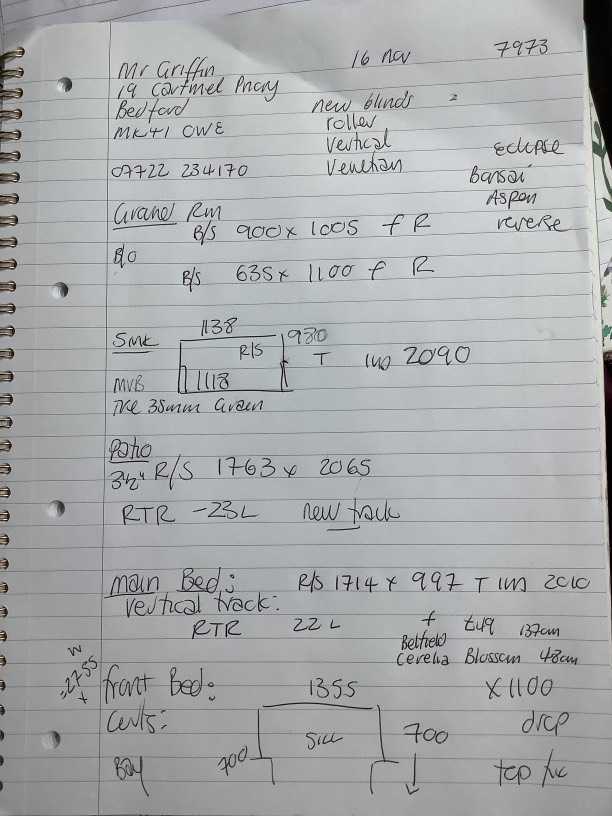 16 nov 7973
Mr Griffin
19 Cartmel Priory
Bedford new blinds 2
MK41 OWE roller
Vertical Eclipse
07722 234170 Venetian Bansai
Aspen
Grand Rm reverse
B/S 900 x 1005 f R
B/O
B/S 635 x 1100 f R
1138
Smk R/S 980 T 2090
MVB 1118
35mm Grain
Patio
3½" R/S 1763 x 2065
RTR -23L new track
Main Bed: R/S 1714 x 997 T 2010
Vertical track:
RTR 22L + 137cm
Belfield
Cerelia Blossom 48cm
W
=2755
+
front Bed: 1355 x1100
drop
Sill 700
700
Bay top